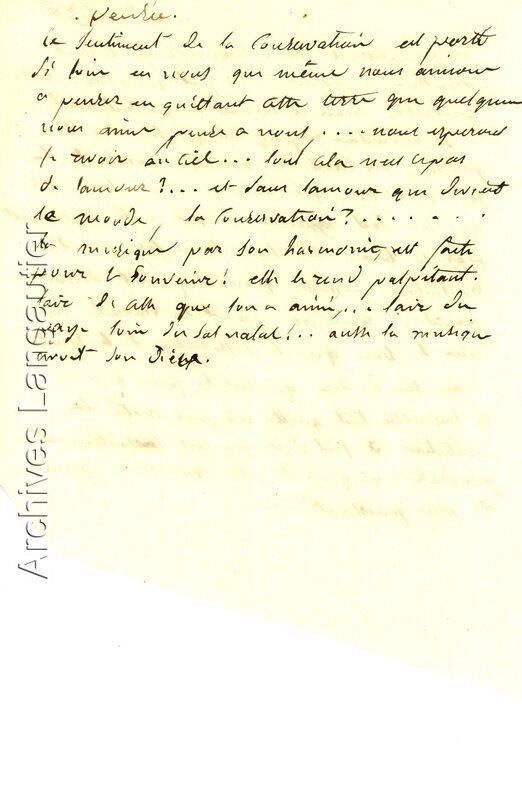 pensée.
le sentiment de la Conservation est porté
si loin en nous que même nous aimons
a penser en quittant cette terre que quelqun
nous aime pense a nous, .... nous esperons
le revoir au ciel... tout cela nest ce pas
de lamour?... et sans lamour que devient
le monde, la Conservation?......
la musique par son harmonie, est faite
pour le souvenir! elle le rend palpitant.
lair de celle que lon a aimé,... lair du
pays loin du sol natal!.. aussi la musique
avoit son Dieu.
Archives Langautier